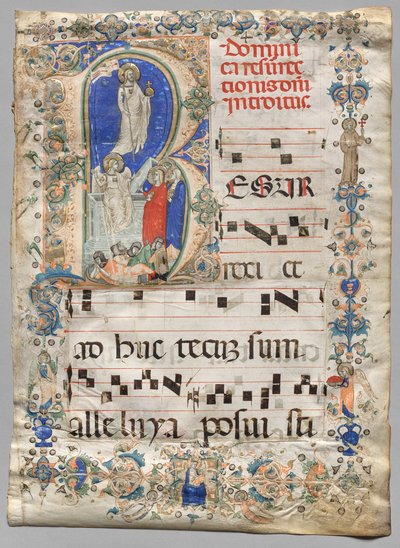 Domini
ca resurrec
tionis dñi
introitus.
R
ESUR
rexi et
ad huc tecuz sum
alleluya posui sti